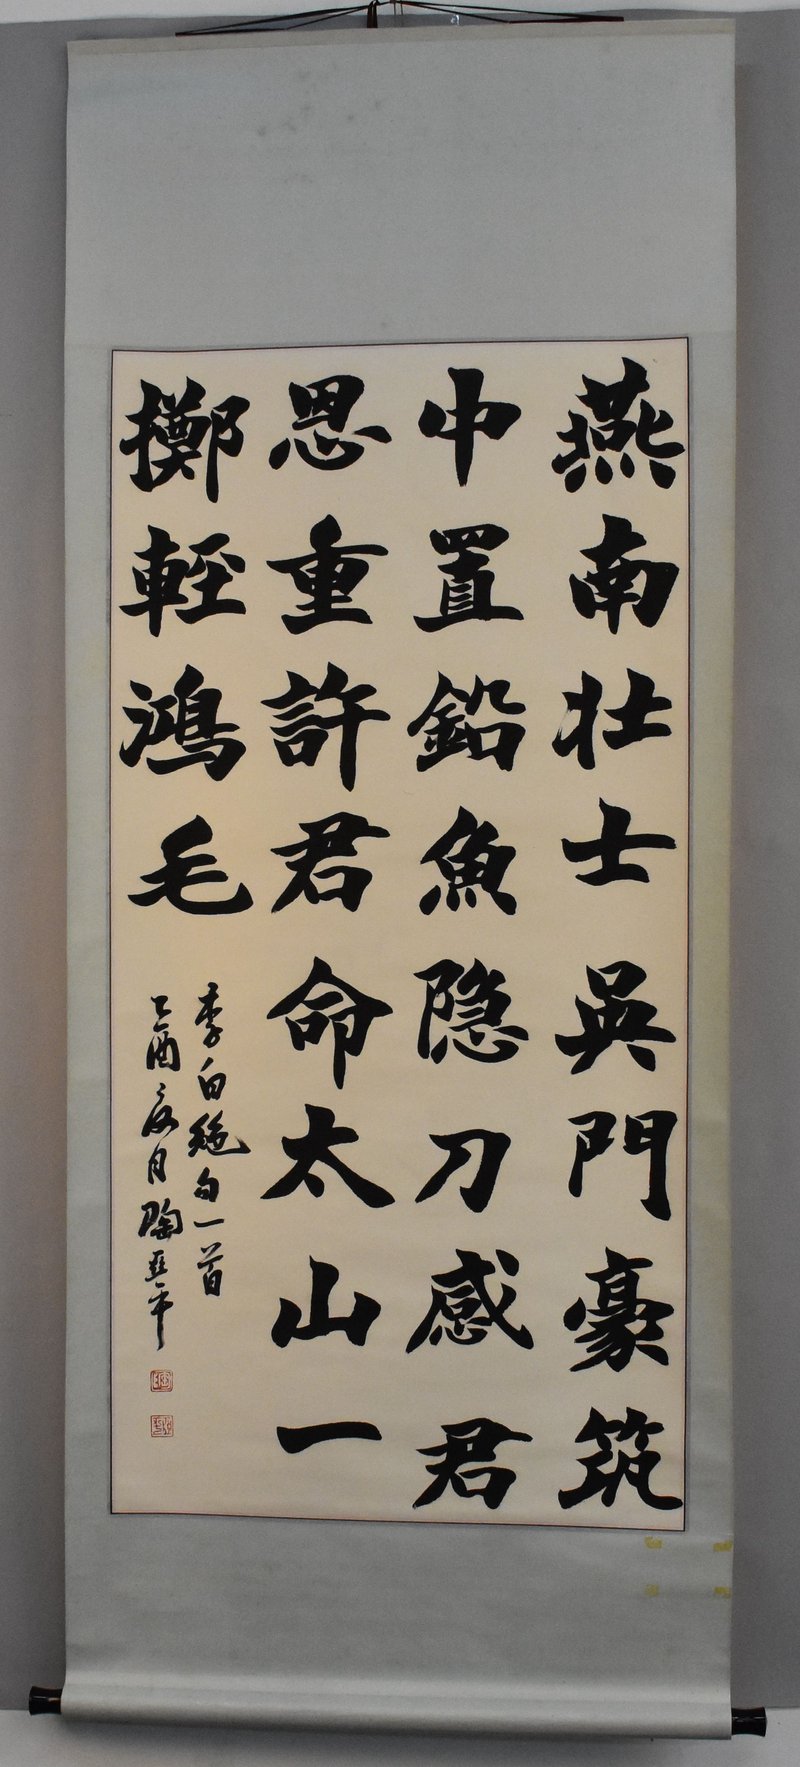 燕南壮士吳門豪筑
中置鉛魚隐刀感君
恩重許君命太山一
擲輕鴻毛
李白絶句一首
乙酉月陶亚平